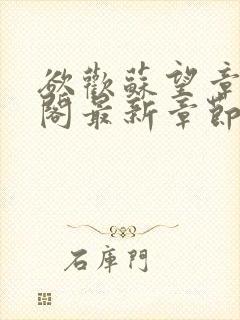 欲歡蘇望章
閣最新章節
石庫門